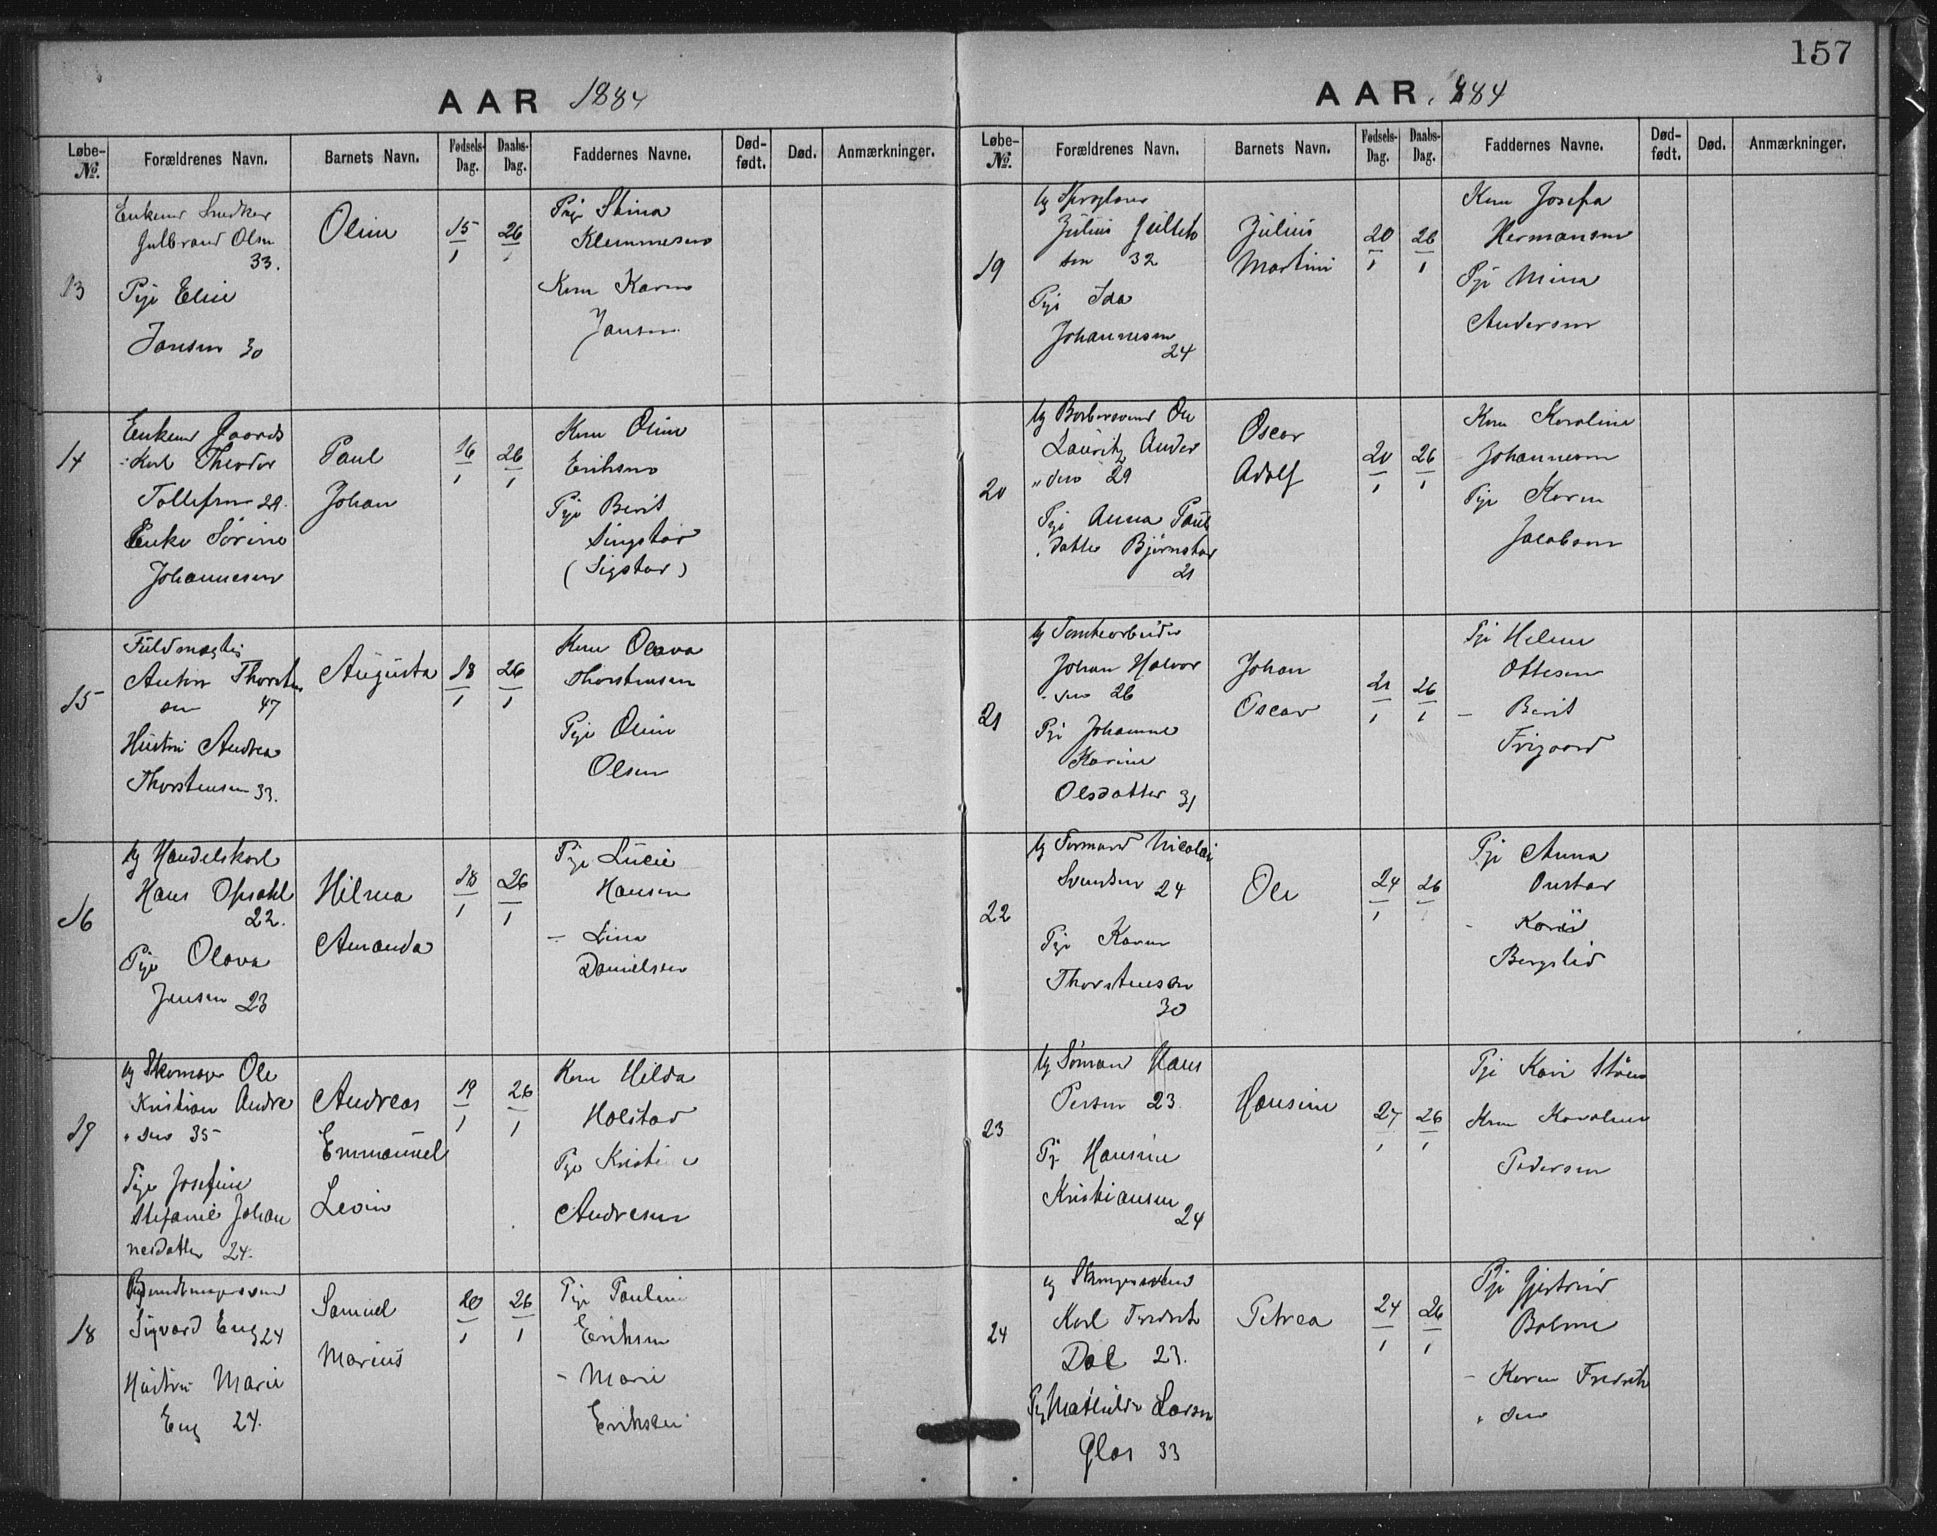 157
AAR 1884
Løbe-№. Forældrenes Navn. Barnets Navn. Fødsels-Dag. Daabs-Dag. Faddernes Navne. Død-født. Død. Anmærkninger.
13
Enkem Snedker
Gulbrand Olsen
33.
Pige Elise
Jansen 30
Oline
15/1
26/1
Pige Stina
Klemmesen
Kone Karen
Jansen
14
Enkem
Karl Theodor
Tollefsen 29.
Enke Sørine
Johannesen
Paul
Johan
16/1
26/1
Kone Oline
Eriksen
Pige Berit
Singstad
(Sigstad)
15
Fuldmægtig
Anton Thorsten
sen 47
Hustru Andrea
Thorstensen 33.
Augusta
18/1
26/1
Kone Olava
Thorstensen
Pige Oline
Olsen
16
Ug Handelskarl
Hans Opsahl
22.
Pige Olava
Jensen 23
Hilma
Amanda
18/1
26/1
Pige Lucie
Hansen
– Lina
Danielsen
19
Ug Skomager Ole
Kristian Andre
" sen 35
Pige Josefine
Stefanie Johan
nesdatter 24.
Andreas
Emmanuel
Levin
19/1
26/1
Kone Hilda
Holstad
Pige Kristine
Andresen
18
Sigvard Eng 24
Hustru Marie
Eng 24.
Samuel
Marius
20/1
26/1
Pige Pauline
Eriksen
– Marie
Eriksen
AAR 1884
Løbe-№. Forældrenes Navn. Barnets Navn. Fødsels-Dag. Daabs-Dag. Faddernes Navne. Død-født. Død. Anmærkninger.
19
Julius Gulbr
sen 32
Pige Ida
Johannesen
24
Julius
Martin
20/1
26/1
Kone Josefa
Hermansen
Pige Mina
Andersen
20
Ug Barbersvend Ole
Lauritz Ander
" sen 29
Pige Anna Pauls
datter Bjørnstad
21
Oscar
Adolf
20/1
26/1
Kone Karoline
Johannesen
Pige Karen
Jacobsen
21
Ug Tomtearbeider
Johan Halvor
" sen 26
Pige Johanne
Karine
Olsdatter 31
Johan
Oscar
21/1
26/1
Pige Helene
Ottesen
– Berit
Frigaard
22
Ug Formand Nicolai
Svendsen 24
Pige Karen
Thorstensen
30
Ole
24/1
26/1
Pige Anna
Onstad
– Kari
Bergslid
23
Ug Sømand Hans
Persen 23.
Pige Hansine
Kristiansen
24
Hansine
24/1
26/1
Pige Kari Støen
Kone Karoline
Pedersen
24
Ug Skomagersvend
Karl Fredrik
Dal 23.
Pige Mathilde Larsen
Glas 33
Petrea
24/1
26/1
Pige Gjertrud
Bolme
– Karen Fredrik
" sen